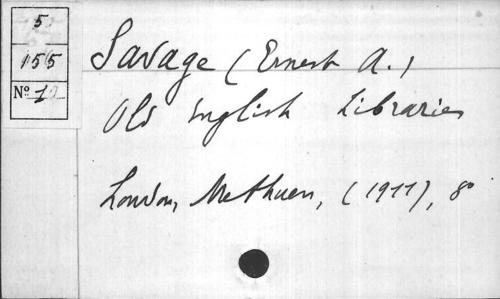 5
155
Nº 12
Savage (Ernest A.)
Old English Libraries
London, Methuen, (1911), 8º